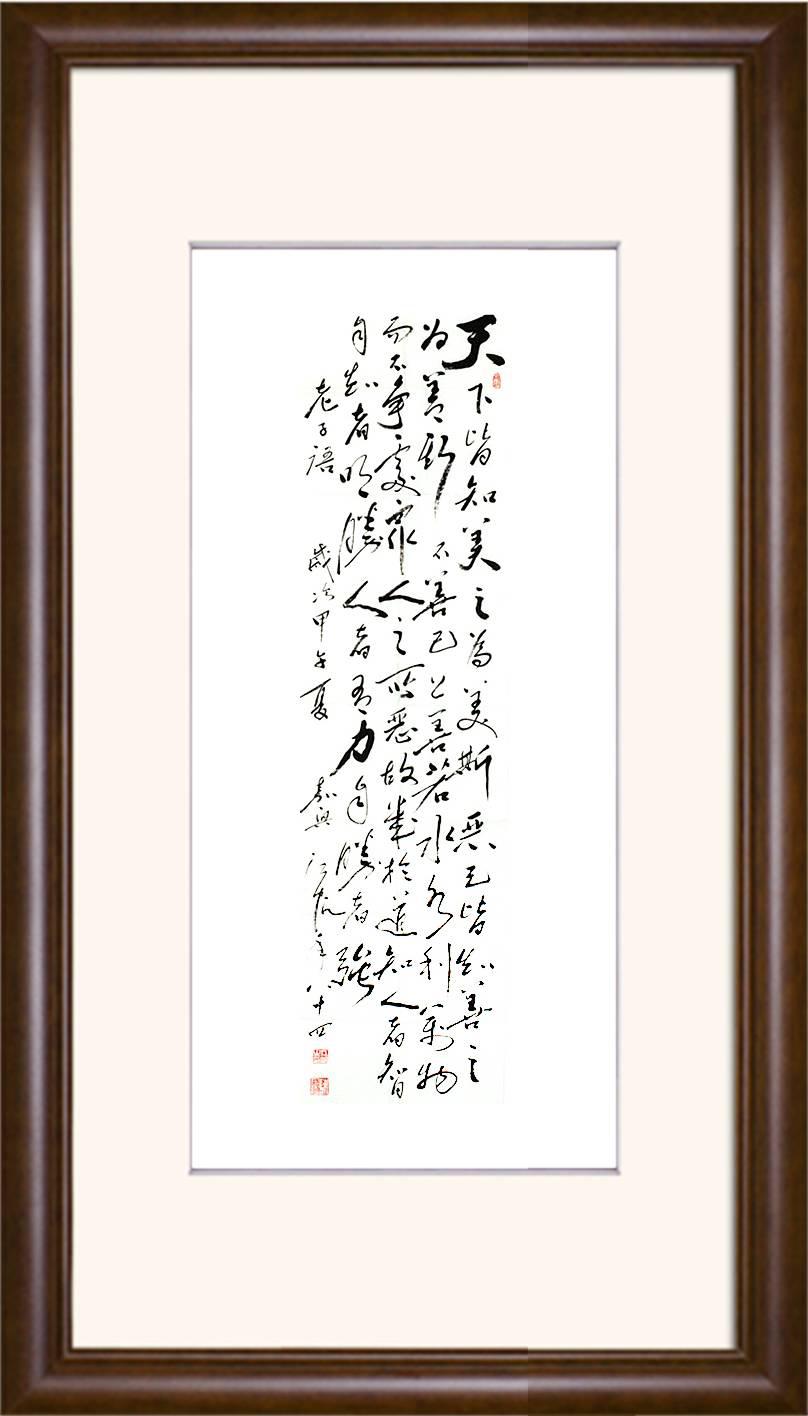 天下皆知美之為美斯惡已皆知善之
为善斯不善已上善若水水利萬物
而不争處衆人之所惡故幾於道知人者智
自知者明勝人者有力自勝者強
老子語 歲次甲午夏 嘉興 年八十四